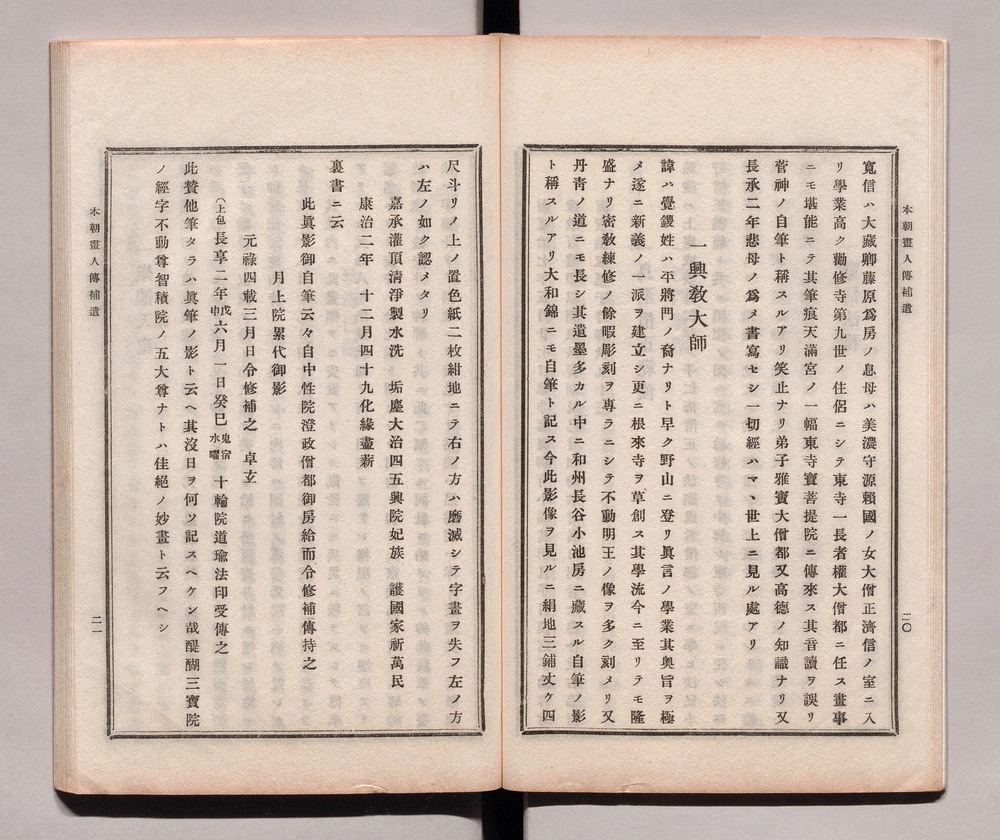 本朝畫人傳補遺
二〇
寬信ハ大藏卿藤原爲房ノ息母ハ美濃守源賴國ノ女大僧正濟信ノ室ニ入
リ學業高ク勸修寺第九世ノ住侶ニシテ東寺一長者權大僧都ニ任ス畫事
ニモ堪能ニテ其筆痕天滿宮ノ一幅東寺寶菩提院ニ傳來ス其音讀ヲ誤リ
菅神ノ自筆ト稱スルアリ笑止ナリ弟子雅寶大僧都又高德ノ知識ナリ又
長承二年悲母ノ爲メ書寫セシ一切經ハマヽ世上ニ見ル處アリ
一興敎大師
諱ハ覺鑁姓ハ平將門ノ裔ナリト早ク野山ニ登リ眞言ノ學業其奧旨ヲ極
メ遂ニ新義ノ一派ヲ建立シ更ニ根來寺ヲ草創ス其學流今ニ至リテモ隆
盛ナリ密敎練修ノ餘暇彫刻ヲ專ラニシテ不動明王ノ像ヲ多ク刻メリ又
丹靑ノ道ニモ長シ其遺墨多カル中ニ和州長谷小池房ニ藏スル自筆ノ影
ト稱スルアリ大和錦ニモ自筆ト記ス今此影像ヲ見ルニ絹地三鋪丈ケ四
尺斗リノ上ノ置色紙二枚紺地ニテ右ノ方ハ磨滅シテ字畫ヲ失フ左ノ方
ハ左ノ如ク認メタリ
嘉承灌頂淸淨製水洗 垢塵大治四五興院妃族 護國家祈萬民
康治二年 十二月四十九化緣盡薪
裏書ニ云
此眞影御自筆云々自中性院澄政僧都御房給而令修補傳持之
月上院累代御影
元祿四載三月日令修補之 卓玄
(上包)長享二年戊申六月一日癸巳鬼宿水曜十輪院道瑜法印受傳之
此賛他筆タラハ眞筆ノ影ト云ヘ其沒日ヲ何ソ記スヘケン哉醍醐三寶院
ノ經字不動尊智積院ノ五大尊ナトハ佳絕ノ妙畫ト云フヘシ
本朝畫人傳補遺
二一